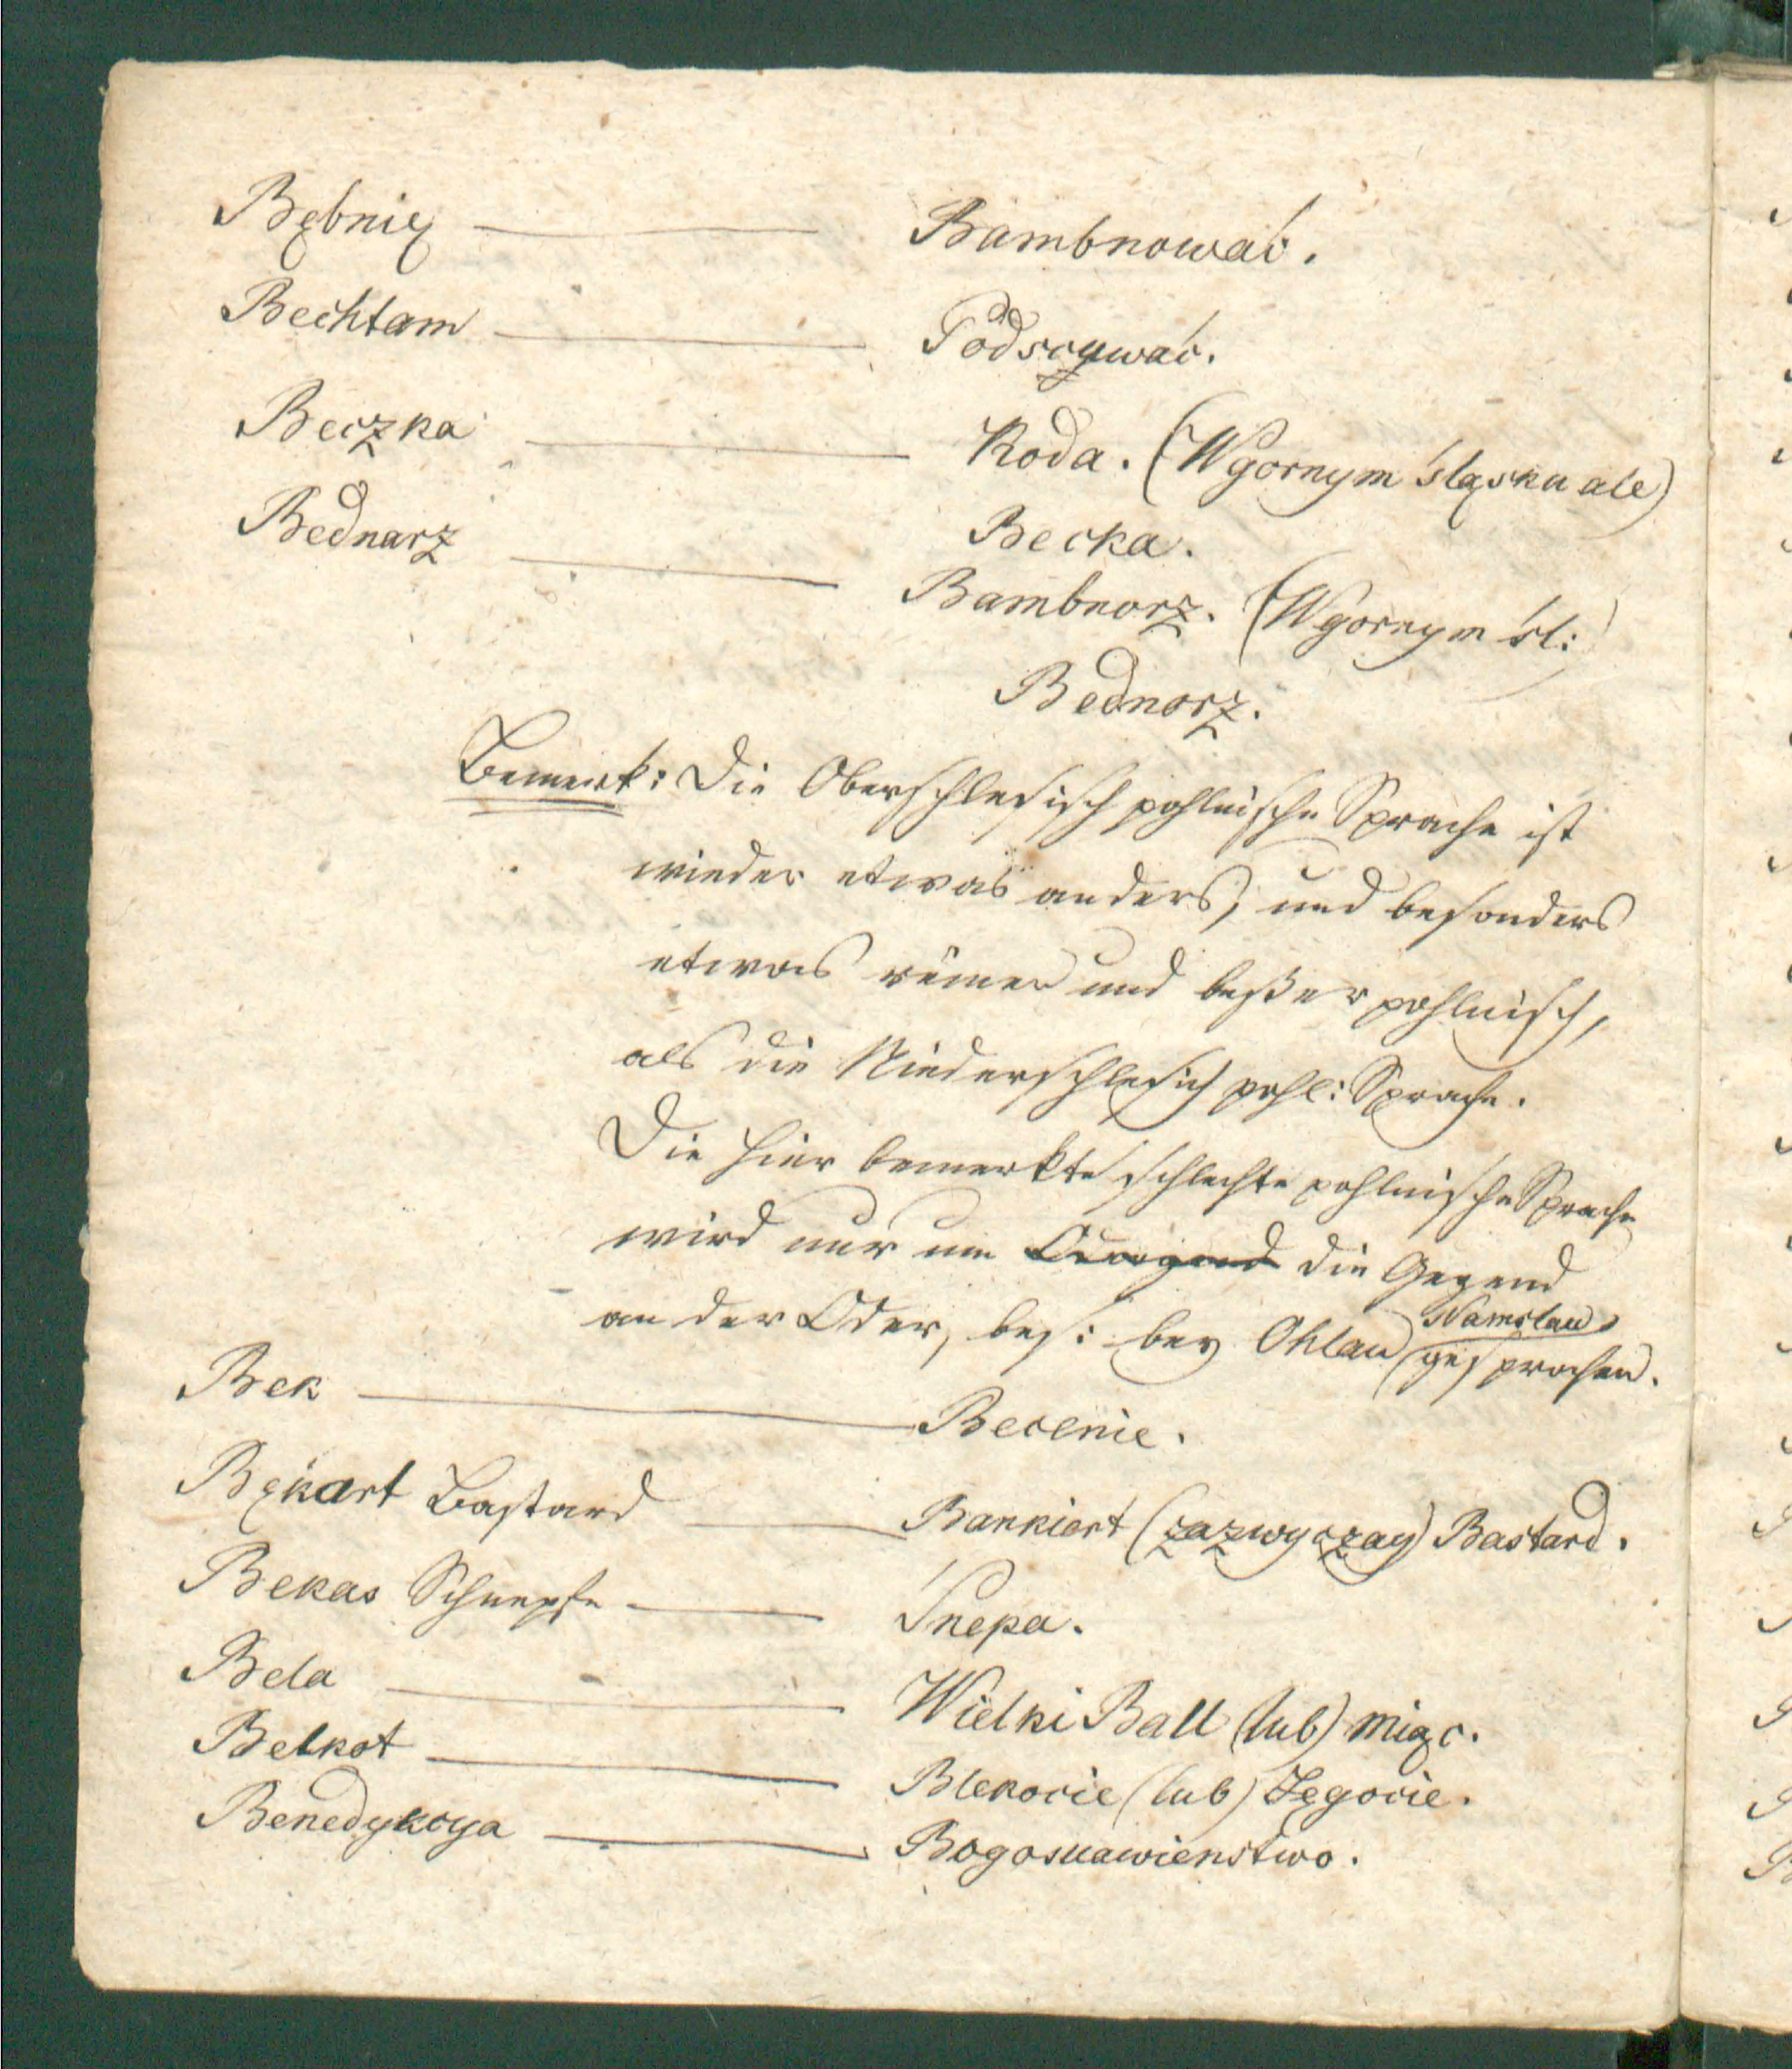 Bębnię — Bambnować.
Bechtam — Podscywać.
Beczka — Koda. (W gornym śląsku ale)
Becka.
Bednarz — Bambnorz. (W gornym śl:)
Bednorz.
Bemerk: Die Oberschlesisch pohlnische Sprache ist
wieder etwas anders, und besonders
etwas reiner und beßer pohlnisch,
als die Niederschlesisch pohl: Sprache.
Die hier bemerkte schlechte pohlnische Sprache
wird nur um die Gegend
an der Oder, bes: bey Ohlau Namslau gesprochen.
Bek — Becenie.
Bękart Bastard — Bankiert (zazwyczay) Bastard.
Bekas Schnepfe — Śnepa.
Bela — Wielki Ball (lub) Miąc.
Bełkot — Blekocie (lub) Zegocie.
Benedykcya — Bogosuawienstwo.